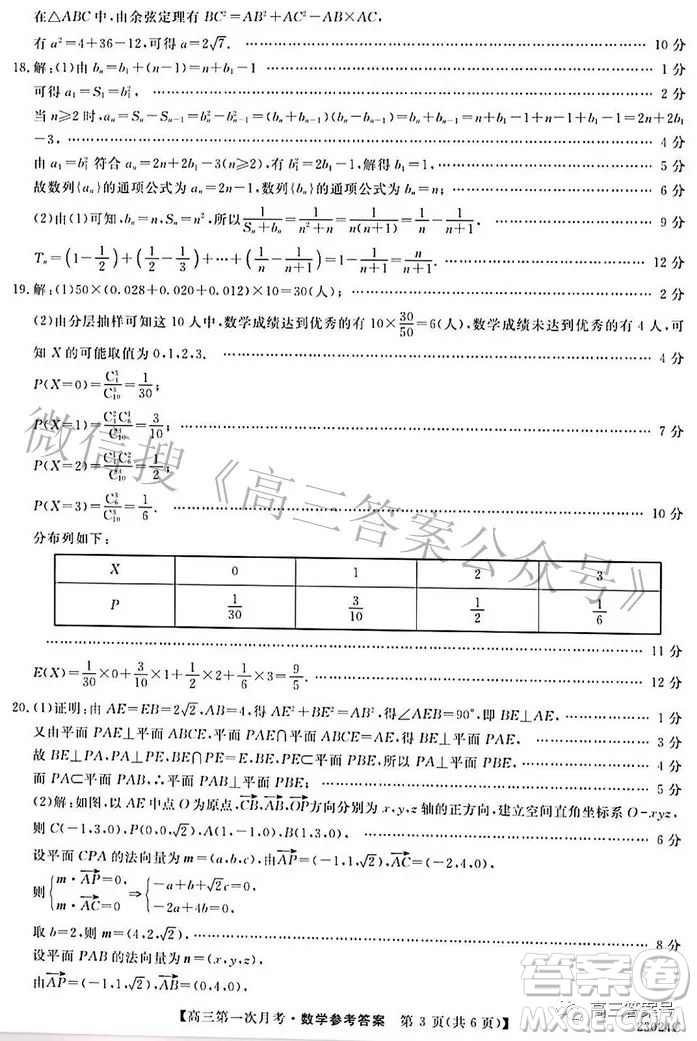 在△ABC中,由余弦定理有 BC²=AB²+AC²-AB×AC,
有 a²=4+36-12,可得 a=2√7. 10分
18.解:(1)由 bₙ=b₁+(n-1)=n+b₁-1 1分
可得 a₁=S₁=b₁², 2分
当 n≥2 时,aₙ=Sₙ-Sₙ₋₁=bₙ²-bₙ₋₁²=(bₙ+bₙ₋₁)(bₙ-bₙ₋₁)=bₙ+bₙ₋₁=n+b₁-1+n-1+b₁-1=2n+2b₁
-3, 4分
由 a₁=b₁² 符合 aₙ=2n+2b₁-3(n∈N*),有 b₁²=2b₁-1,解得 b₁=1. 5分
故数列{aₙ}的通项公式为 aₙ=2n-1,数列{bₙ}的通项公式为 bₙ=n; 6分
(2)由(1)可知,bₙ=n,Sₙ=n²,所以 1/(Sₙ+bₙ)=1/(n²+n)=1/(n(n+1))=1/n-1/(n+1). 9分
Tₙ=(1-1/2)+(1/2-1/3)+…+(1/n-1/(n+1))=1-1/(n+1)=n/(n+1). 12分
19.解:(1)50×(0.028+0.020+0.012)×10=30(人); 2分
(2)由分层抽样可知这 10 人中,数学成绩达到优秀的有 10×30/50=6(人),数学成绩未达到优秀的有 4 人,可
知 X 的可能取值为 0,1,2,3. 4分
P(X=0)=C₄³/C₁₀³=1/30;
P(X=1)=C₄²C₆¹/C₁₀³=3/10; 7分
P(X=2)=C₄¹C₆²/C₁₀³=1/2;
P(X=3)=C₆³/C₁₀³=1/6. 10分
分布列如下:
X 0 1 2 3
P 1/30 3/10 1/2 1/6
11分
E(X)=1/30×0+3/10×1+1/2×2+1/6×3=9/5. 12分
20.(1)证明:由 AE=EB=2√2,AB=4,得 AE²+BE²=AB²,得∠AEB=90°,即 BE⊥AE. 1分
又由平面 PAE⊥平面 ABCE,平面 PAE∩平面 ABCE=AE,得 BE⊥平面 PAE. 3分
故 BE⊥PA,PA⊥PE,BE∩PE=E,BE,PE⊂平面 PBE,得 PA⊥平面 PBE; 4分
而 PA⊂平面 PAB,∴平面 PAB⊥平面 PBE; 5分
(2)解:如图,以 AE 中点 O 为原点,CB,AB,OP方向分别为 x,y,z 轴的正方向,建立空间直角坐标系 O-xyz,
则 C(-1,3,0),P(0,0,√2),A(1,-1,0),B(1,3,0). 6分
设平面 CPA 的法向量为 m=(a,b,c),由AP=(-1,1,√2),AC=(-2,4,0).
则{m·AP=0, m·AC=0 ⇒{-a+b+√2c=0, -2a+4b=0,
取 b=2,则 m=(4,2,√2). 8分
设平面 PAB 的法向量为
由AP=(-1,1,√2),
【高三第一次月考·数学参考答案 第 3 页(共 6 页)】
23024C
微信搜《高三答案公众号》
答案卷
高三答案号